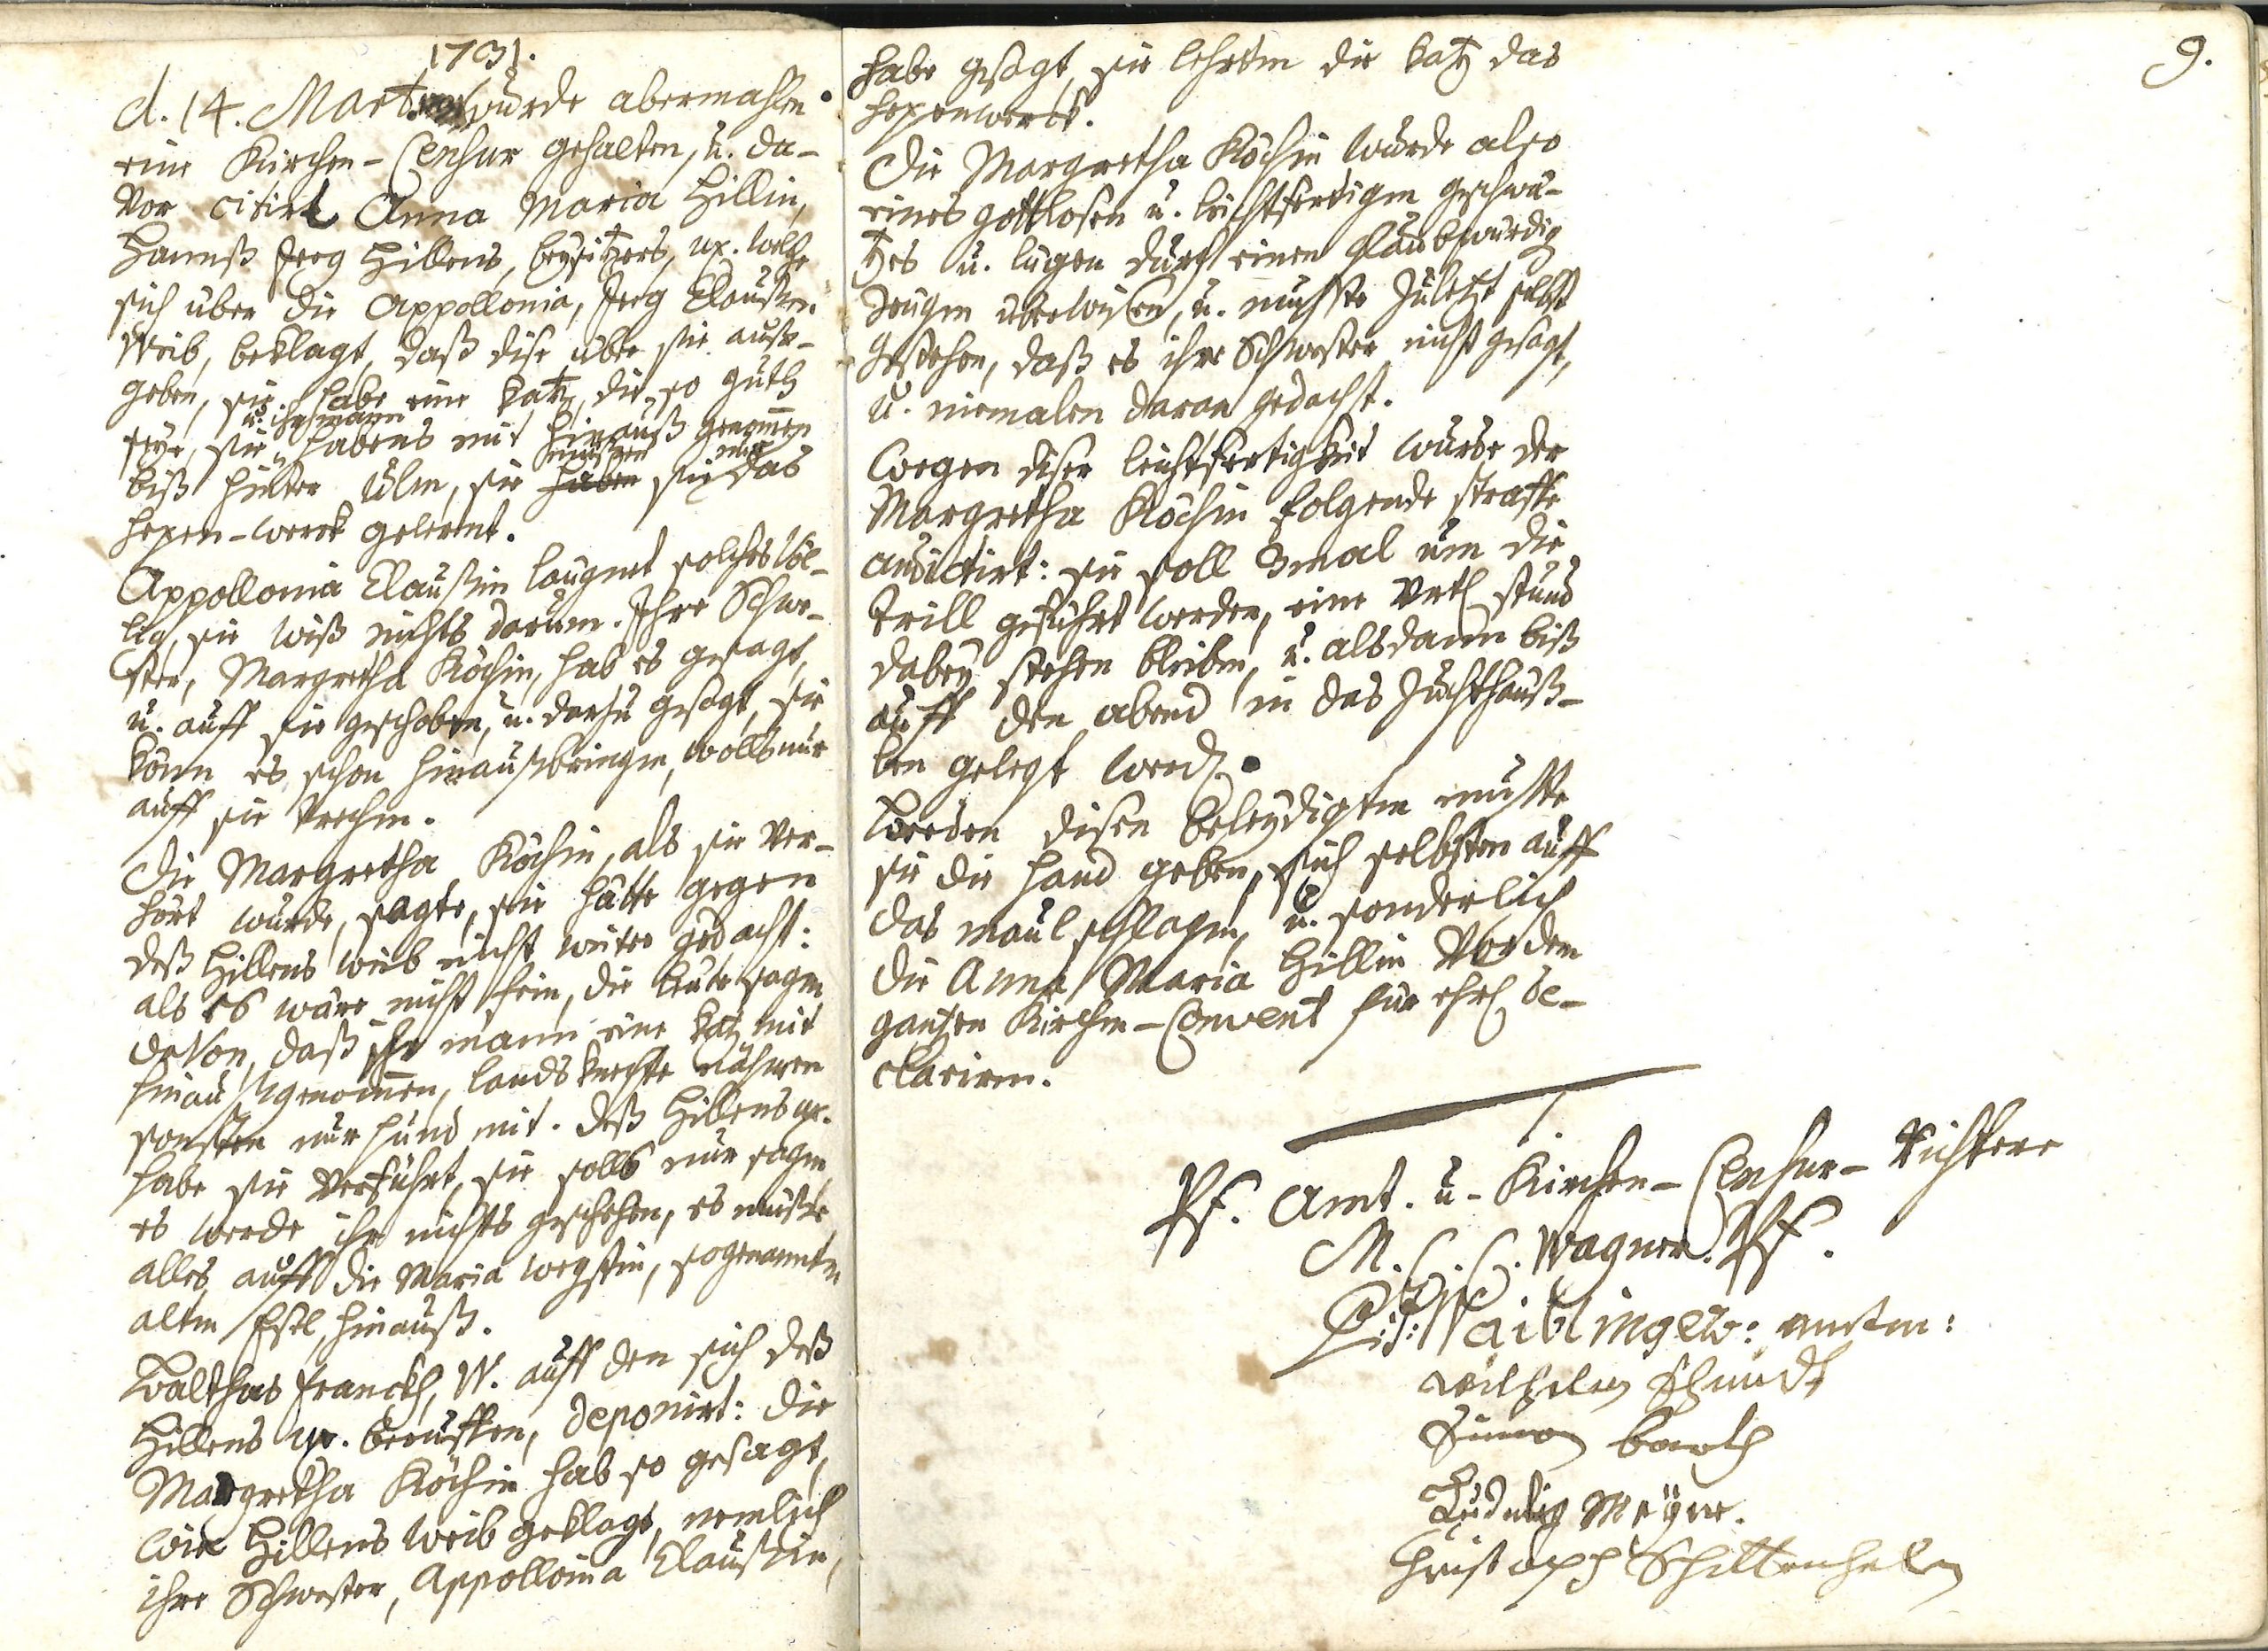 1731.
d. 14. Mart. wurde abermahlen
eine Kirchen-Censur gehalten, u. da-
vor citirt Anna Maria Hillin,
Hannß Jerg Hillens, beysitzers, ux. welche
sich über die Appollonia, Jerg Claußen
Weib, beklagt, daß dise über sie auß-
geben, sie habe eine Katz, die so guth
u. ihr mann
seye, sie habens mit hinauß genom̅en
müssen
biß hinter Ulm, sie haben sie das
hexen-werck gelernt.
Appollonia Claußin laugnet solches völ-
lig, sie wiß nichts darum. Ihre Schwe-
ster, Margretha Köchin, hab es gesagt,
u. auff sie geschoben, u. darzu gesagt, sie
könn es schon hinaußbringen, wolls nur
auff sie trechen.
Die Margretha Köchin, als sie ver-
hört wurde, sagte, sie hätte gegen
deß Hillens weib nicht weiter gedacht:
als es wäre nicht fein, die Leute sagen
davon, daß ihr mann eine Katz mit
hinauß genom̅en, landsknechte nähmen
sonsten nur hund mit. deß Hillens ux.
habe sie verführt, sie solls nur sagen
es werde ihr nichts geschehen, es müste
alles auff die Maria wegstin, sogenannten
alten Esel, hinauß.
Balthas Franckh, W. auff den sich deß
Hillens ux. beruffen, deponirt: die
Margretha Köchin hab so gesagt,
wie Hillens Weib geklagt, nemlich
ihre Schwester, Appollonia Claußin,
9.
habe gesagt, sie lehrten die Katz das
hexenwerck.
Die Margretha Köchin wurde also
eines gottlosen u. leichtfertigen geschwä-
tzes u. lügen durch einen glaubwürdig
zeugen überwisen, u. muste zuletzt selbst
gestehen, daß es ihre Schwester nicht gesagt,
u. niemalen daran gedacht.
Wegen diser leichtfertigkeit wurde der
Margretha Köchin folgende straffe
andictirt: sie soll 3mal um die
trill geführt werden, eine Vrtl stund
dabey stehen bleiben, u. alsdann biß
auff den abend in das Zuchthauß-
len gelegt werd.
Beeden disen beleydigten muste
sie die hand geben, sich selbsten auff
das maul schlagen, u. sonderlich
die Anna Maria Hillin vor dem
gantzen Kirchen-Convent für ehrl. de-
clariren.
Pf. Amt. u. Kirchen-Censur-Richtere
M. C. C. Wagner. Pf.
Waiblinger:
Wilhelm Schmidt
Simon barth
Ludwig Meyer.
Christoph Schittenhelm